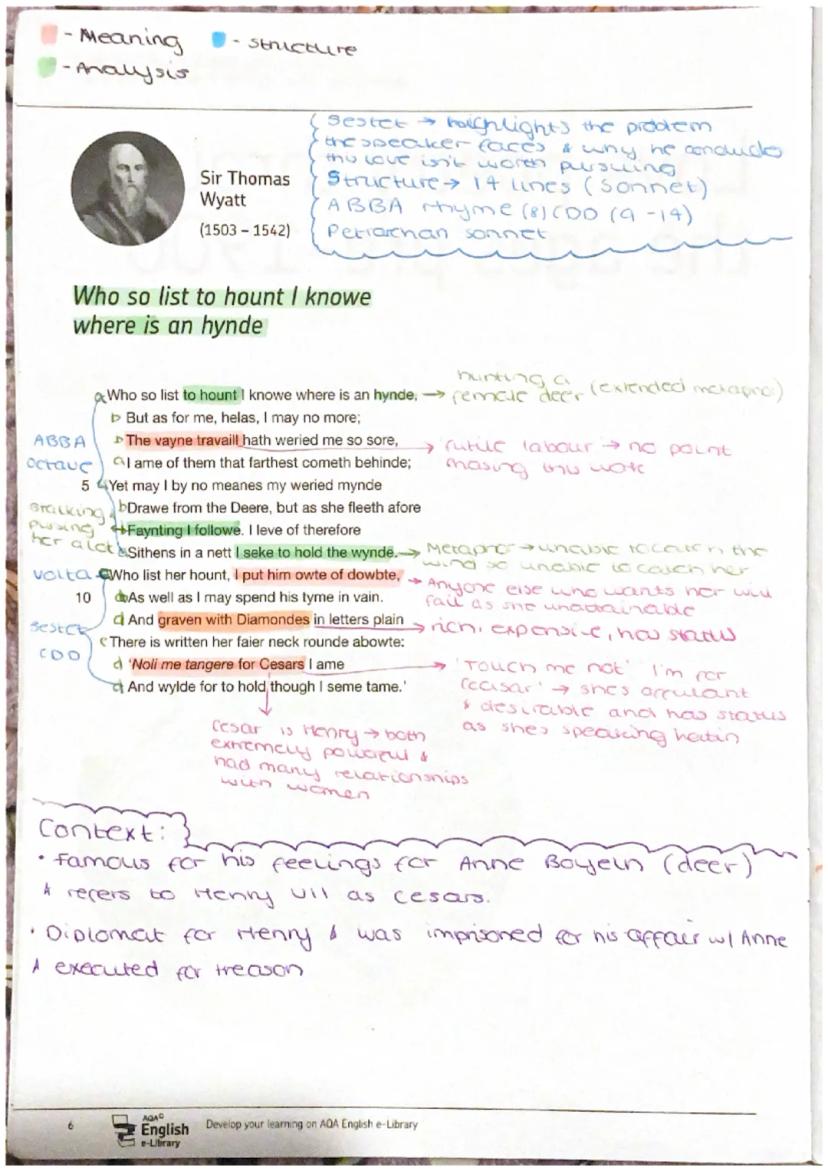 - Meaning
- structure
- Analysis
Sestet → highlights the problem
the speaker faces & why he concludes
this love isn't worth pursuing
Structure → 14 lines (sonnet)
ABBA rhyme (8) CDD (9-14)
Petrarchan sonnet
Sir Thomas
Wyatt
(1503 – 1542)
Who so list to hount I knowe
where is an hynde
a Who so list to hount I knowe where is an hynde, → hunting a female deer (extended metaphor)
b But as for me, helas, I may no more;
b The vayne travaill hath weried me so sore, → futile labour → no point chasing this
a I ame of them that farthest cometh behinde;
ABBA
octave
5 a Yet may I by no meanes my weried mynde
b Drawe from the Deere, but as she fleeth afore
Faynting I followe. I leve of therefore
stalking
her a lot
Sithens in a nett I seke to hold the wynde. → Metaphor → unable to catch the wind so unable to catch her
volta
c Who list her hount, I put him owte of dowbte, → Anyone else who wants her will fail as she unobtainable
10 d As well as I may spend his tyme in vain.
d And graven with Diamondes in letters plain → rich, expensive, has status
sestet
CDD
c There is written her faier neck rounde abowte:
d 'Noli me tangere for Cesars I ame → 'Touch me not' I'm for
→ she's
& desirable and has status
as shes speaking
d And wylde for to hold though I seme tame.'
Cesar is Henry → both
extremely powerful &
had many relationships
with women
Context:
• Famous for his feelings for Anne Boyeln (deer)
& refers to Henry VII as Cesars.
• Diplomat for Henry & was imprisoned for his affair w/ Anne
& executed for treason
6
AQA
English
e-Library
Develop your learning on AQA English e-Library